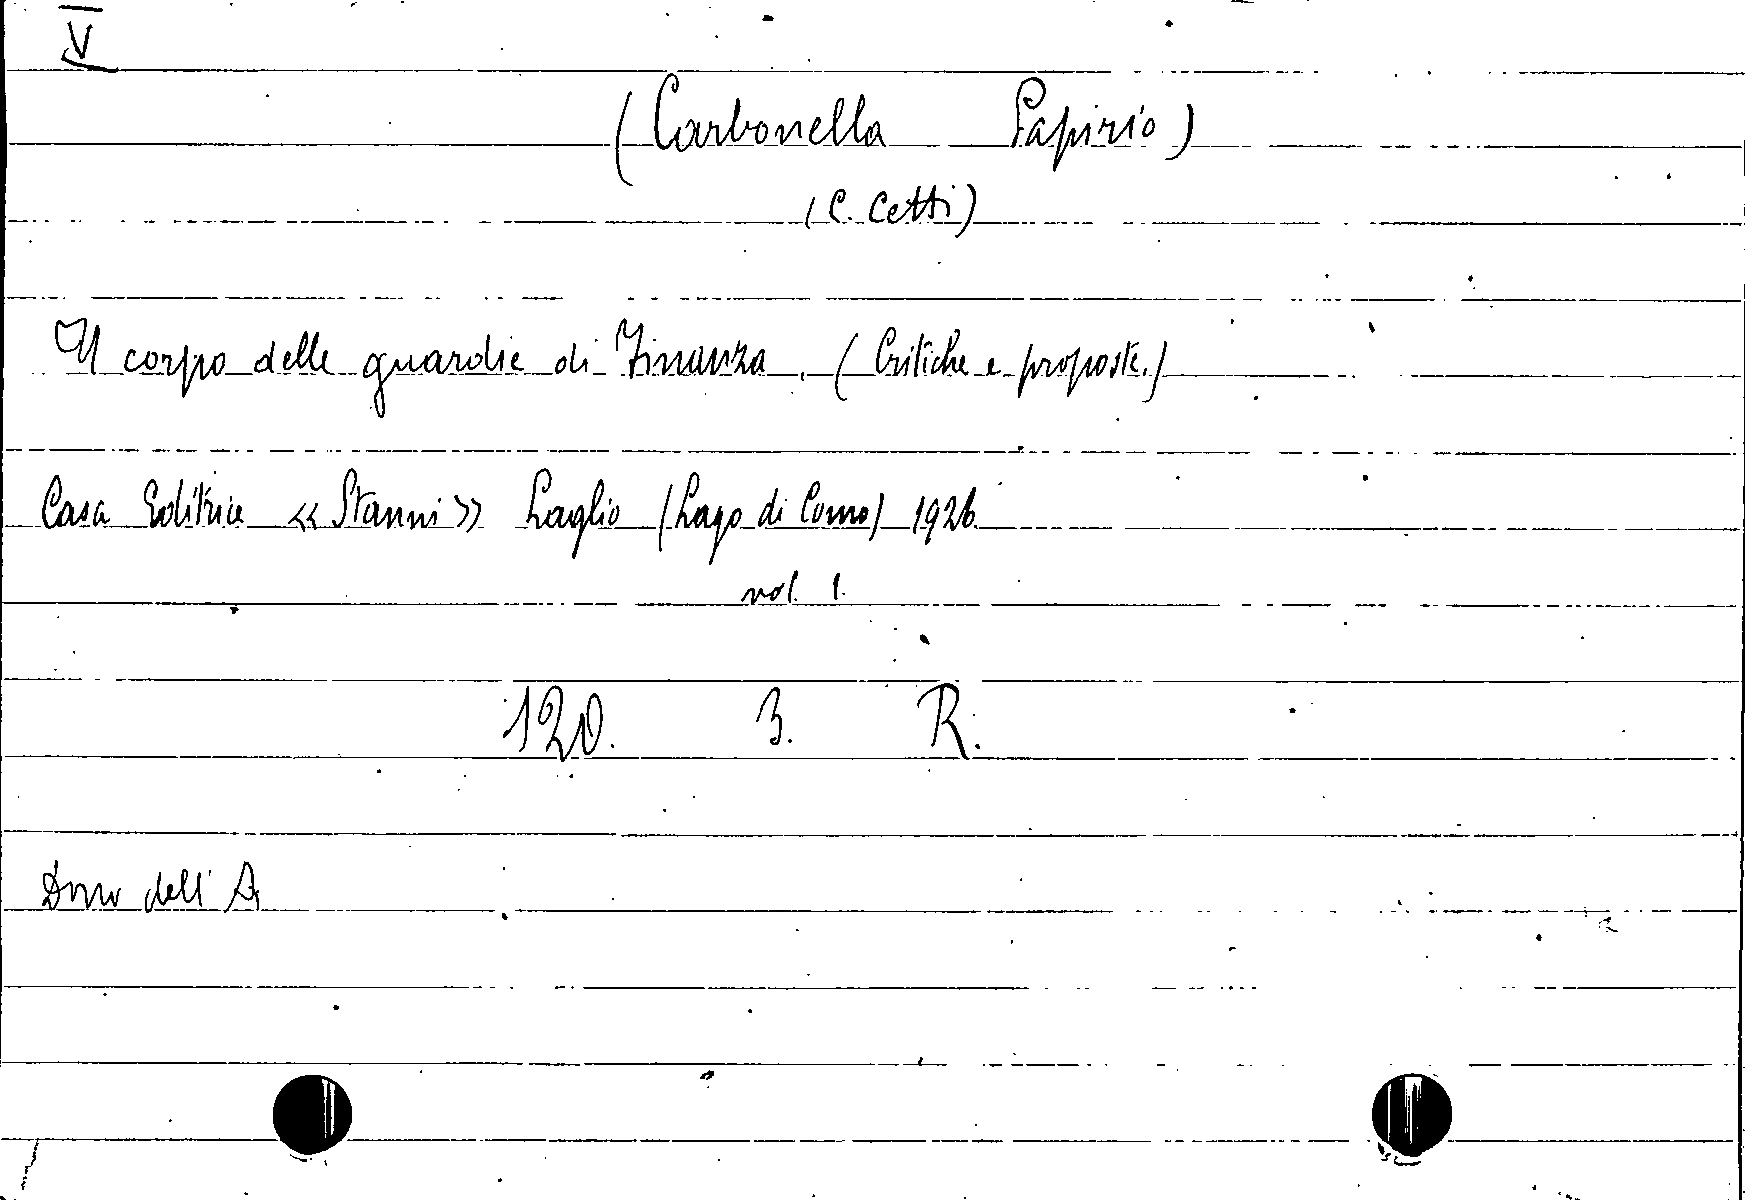 V
(Carbonella Papirio)
(C. Cetti)
Il corpo delle guardie di Finanza. (Critiche e proposte.)
Casa Editrice «Stanni» Laglio (Lago di Como) 1926
vol. 1.
120. 3. R.
Dono dell'A